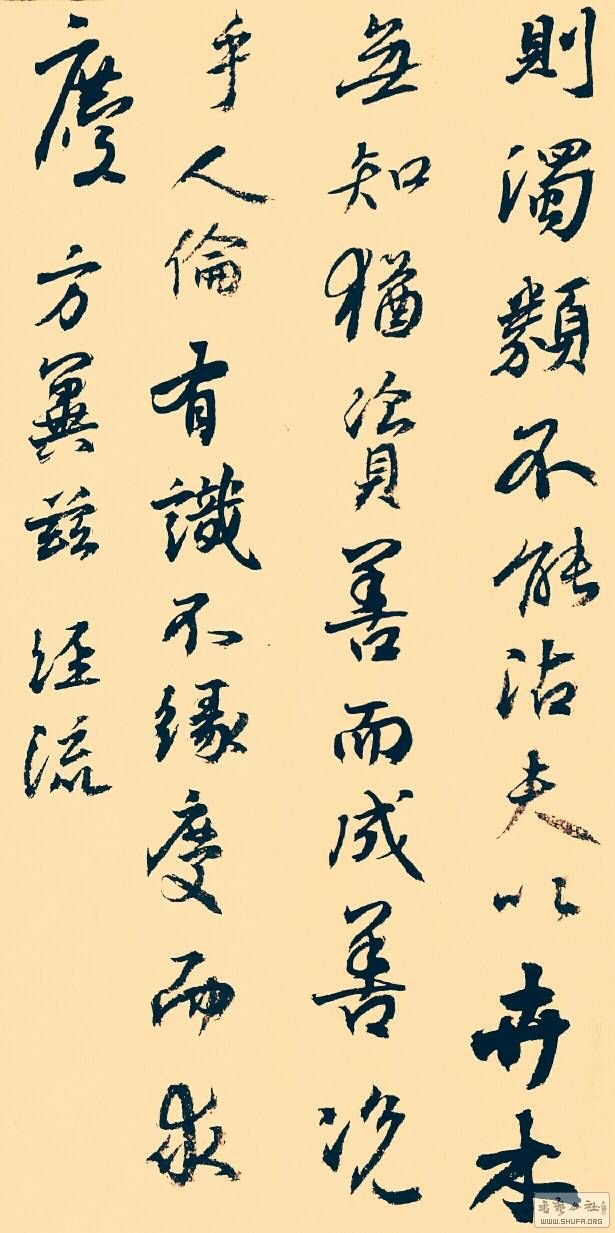 則濁類不能沾夫以卉木
無知猶資善而成善況
乎人倫有識不緣慶而求
慶方冀茲經流
WWW.SHUFA.ORG